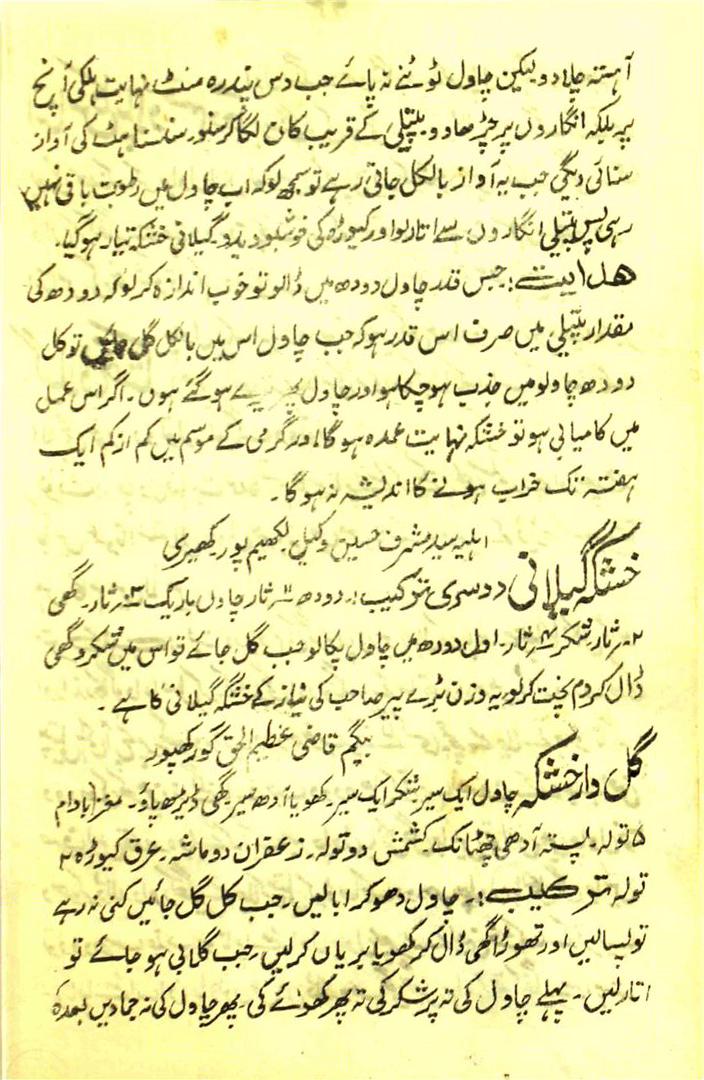 آہستہ چلا دو لیکن چاول ٹوٹنے نہ پائے جب دس پندرہ منٹ نہایت ہلکی آنچ
پر بلکہ انگاروں پر چڑھا دو پتیلی کے قریب کان لگا کر سنو۔ سنسناہٹ کی آواز
سنائی دیگی جب یہ آواز بالکل جاتی رہے تو سمجھ لو کہ اب چاول میں رطوبت باقی نہیں
رہی پس پتیلی انگاروں سے اتار لو اور کیوڑہ کی خوشبو دیدو۔ گیلانی خشکہ تیار ہو گیا۔
ھدایت:۔ جس قدر چاول دودھ میں ڈالو تو خوب اندازہ کر لو کہ دودھ کی
مقدار پتیلی میں صرف اس قدر ہو کہ جب چاول اس میں بالکل گل جائیں تو کل
دودھ چاولو میں جذب ہو چکا ہو اور چاول ہو گئے ہوں۔ اگر اس عمل
میں کامیابی ہو تو خشکہ نہایت عمدہ ہو گا اور گرمی کے موسم میں کم از کم ایک
ہفتہ تک خراب ہونے کا اندیشہ نہ ہو گا۔
اہلیہ سید مشرف حسین وکیل لکھیم پور کھیری
خشکہ گیلانی دوسری ترکیب:۔ دودھ ثار چاول باریک ۳ ثار۔ گھی
۲ ثار شکر ۴ ثار۔ اول دودھ میں چاول پکا لو جب گل جائے تو اس میں شکر و گھی
ڈال کر دم پخت کر لو یہ وزن بڑے پیر صاحب کی نیاز کے خشکہ گیلانی کا ہے۔
بیگم قاضی عظیم الحق گورکھپور
گل دار خشکہ چاول ایک سیر شکر ایک سیر۔ کھویا آدھ سیر گھی ڈیڑھ پاؤ۔ مغز بادام
۵ تولہ۔ پستہ آدھی چھٹانک۔ کشمش دو تولہ۔ زعفران دو ماشہ۔ عرق کیوڑہ ۲
تولہ ترکیب:۔ چاول دھو کر ابالیں۔ جب کل گل جائیں کنی نہ رہے
تو پسالیں اور تھوڑا گھی ڈال کر کھویا بریاں کر لیں۔ جب گلابی ہو جائے تو
اتار لیں۔ پہلے چاول کی تہ پر شکر کی تہ پھر کھوئے کی۔ پھر چاول کی تہ جمادیں بعدہٗ